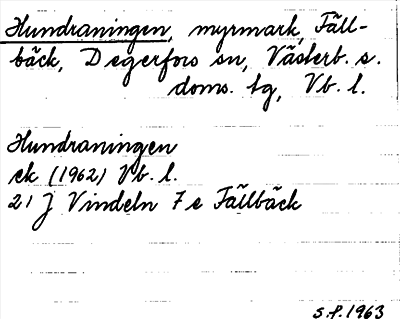 Hundraningen, myrmark, Fäll-
bäck, Degerfors sn, Västerb. s.
doms. tg, Vb. l.
Hundraningen
ek (1962) Vb. l.
21 J Vindeln 7 e Fällbäck
S.f. 1963